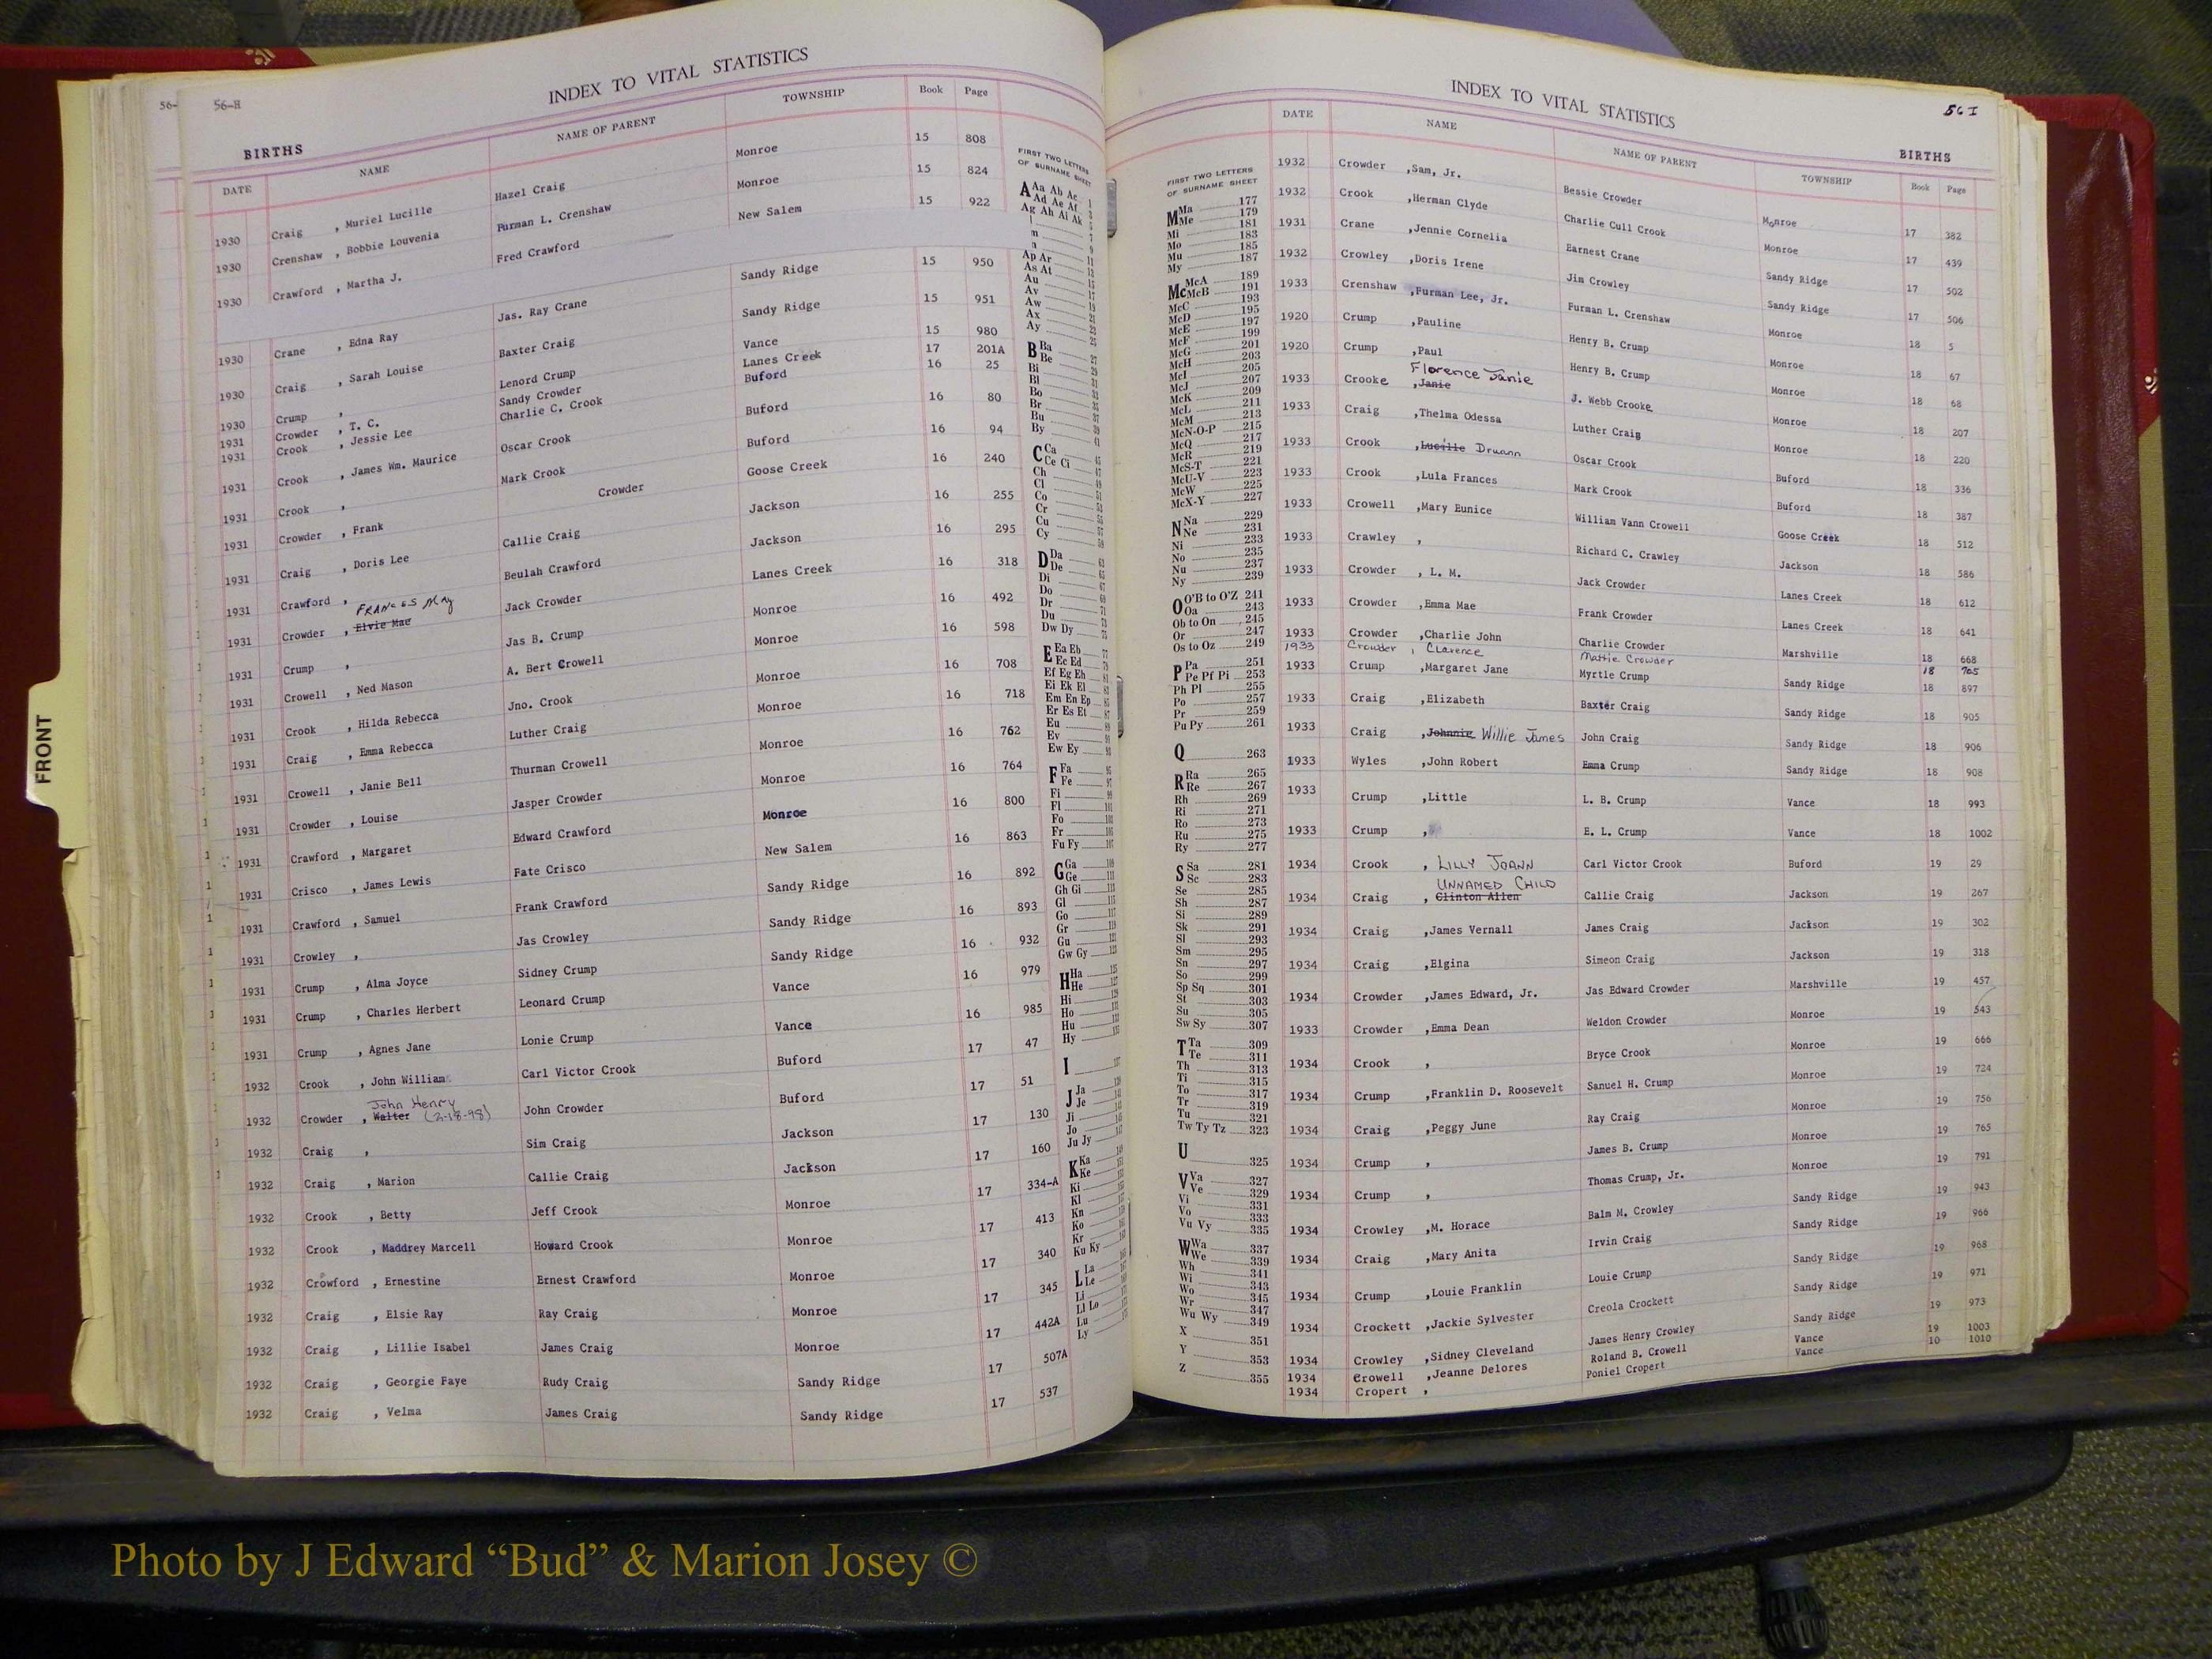 56-
56-H
INDEX TO VITAL STATISTICS
BIRTHS
DATE NAME NAME OF PARENT TOWNSHIP Book Page
1930 Craig , Muriel Lucille Hazel Craig Monroe 15 808
1930 Crenshaw , Bobbie Louvenia Furman L. Crenshaw Monroe 15 824
1930 Crawford , Martha J. Fred Crawford New Salem 15 922
1930 Crane , Edna Ray Jas. Ray Crane Sandy Ridge 15 950
1930 Craig , Sarah Louise Baxter Craig Sandy Ridge 15 951
1930 Crump , Lenord Crump Vance 15 980
1931 Crowder , T. C. Sandy Crowder Lanes Creek 17 201A
1931 Crook , Jessie Lee Charlie C. Crook Buford 16 25
1931 Crook , James Wm. Maurice Oscar Crook Buford 16 80
1931 Crook , Mark Crook Buford 16 94
1931 Crowder , Frank Crowder Goose Creek 16 240
1931 Craig , Doris Lee Callie Craig Jackson 16 255
1931 Crawford , Beulah Crawford Jackson 16 295
1931 Crowder , Elvie Mae FRANCES May Jack Crowder Lanes Creek 16 318
1931 Crump , Jas B. Crump Monroe 16 492
1931 Crowell , Ned Mason A. Bert Crowell Monroe 16 598
1931 Crook , Hilda Rebecca Jno. Crook Monroe 16 708
1931 Craig , Emma Rebecca Luther Craig Monroe 16 718
1931 Crowell , Janie Bell Thurman Crowell Monroe 16 762
1931 Crowder , Louise Jasper Crowder Monroe 16 764
1931 Crawford , Margaret Edward Crawford Monroe 16 800
1931 Crisco , James Lewis Fate Crisco New Salem 16 863
1931 Crawford , Samuel Frank Crawford Sandy Ridge 16 892
1931 Crowley , Jas Crowley Sandy Ridge 16 893
1931 Crump , Alma Joyce Sidney Crump Sandy Ridge 16 932
1931 Crump , Charles Herbert Leonard Crump Vance 16 979
1931 Crump , Agnes Jane Lonie Crump Vance 16 985
1932 Crook , John William Carl Victor Crook Buford 17 47
1932 Crowder , Walter John Henry (2-18-98) John Crowder Buford 17 51
1932 Craig , Sim Craig Jackson 17 130
1932 Craig , Marion Callie Craig Jackson 17 160
1932 Crook , Betty Jeff Crook Monroe 17 334-A
1932 Crook , Maddrey Marcell Howard Crook Monroe 17 413
1932 Crowford , Ernestine Ernest Crawford Monroe 17 340
1932 Craig , Elsie Ray Ray Craig Monroe 17 345
1932 Craig , Lillie Isabel James Craig Monroe 17 442A
1932 Craig , Georgie Faye Rudy Craig Sandy Ridge 17 507A
1932 Craig , Velma James Craig Sandy Ridge 17 537
FIRST TWO LETTERS
OF SURNAME SHEET
A Aa Ab Ac
Ad Ae Af
Ag Ah Ai Ak
Ap Ar
As At
Au
Av
Aw
Ax
Ay
B Ba
Be
Bi
Bl
Bo
Br
Bu
By
C Ca
Ce Ci
Ch
Cl
Co
Cr
Cu
Cy
D Da
De
Di
Do
Dr
Du
Dw Dy
E Ea Eb
Ec Ed
Ef Eg Eh
Ei Ek El
Em En Ep
Er Es Et
Eu
Ev
Ew Ey
F Fa
Fe
Fi
Fl
Fo
Fr
Fu Fy
G Ga
Ge
Gh Gi
Gl
Go
Gr
Gu
Gw Gy
H Ha
He
Hi
Ho
Hu
Hy
I
J Ja
Je
Ji
Jo
Ju Jy
K Ka
Ke
Ki
Kl
Kn
Ko
Kr
Ku Ky
L La
Le
Li
Ll Lo
Lu
Ly
INDEX TO VITAL STATISTICS
56 I
BIRTHS
DATE NAME NAME OF PARENT TOWNSHIP Book Page
FIRST TWO LETTERS
OF SURNAME SHEET
M Ma 177
Me 179
Mi 181
Mo 183
Mu 185
My 187
Mc McA 189
McB 191
McC 193
McD 195
McE 197
McF 199
McG 201
McH 203
McI 205
McJ 207
McK 209
McL 211
McM 213
McN-O-P 215
McQ 217
McR 219
McS-T 221
McU-V 223
McW 225
McX-Y 227
N Na 229
Ne 231
Ni 233
No 235
Nu 237
Ny 239
O O'B to O'Z 241
Oa 243
Ob to On 245
Or 247
Os to Oz 249
P Pa 251
Pe Pf Pi 253
Ph Pl 255
Po 257
Pr 259
Pu Py 261
Q 263
R Ra 265
Re 267
Rh 269
Ri 271
Ro 273
Ru 275
Ry 277
S Sa 281
Sc 283
Se 285
Sh 287
Si 289
Sk 291
Sl 293
Sm 295
Sn 297
So 299
Sp Sq 301
St 303
Su 305
Sw Sy 307
T Ta 309
Te 311
Th 313
Ti 315
To 317
Tr 319
Tu 321
Tw Ty Tz 323
U 325
V Va 327
Ve 329
Vi 331
Vo 333
Vu Vy 335
W Wa 337
We 339
Wh 341
Wi 343
Wo 345
Wr 347
Wu Wy 349
X 351
Y 353
Z 355
1932 Crowder ,Sam, Jr. Bessie Crowder Monroe 17 382
1932 Crook ,Herman Clyde Charlie Cull Crook Monroe 17 439
1931 Crane ,Jennie Cornelia Earnest Crane Sandy Ridge 17 502
1932 Crowley ,Doris Irene Jim Crowley Sandy Ridge 17 506
1933 Crenshaw ,Furman Lee, Jr. Furman L. Crenshaw Monroe 18 5
1920 Crump ,Pauline Henry B. Crump Monroe 18 67
1920 Crump ,Paul Henry B. Crump Monroe 18 68
1933 Crooke ,Janie Florence Janie J. Webb Crooke Monroe 18 207
1933 Craig ,Thelma Odessa Luther Craig Monroe 18 220
1933 Crook ,Lucille Druann Oscar Crook Buford 18 336
1933 Crook ,Lula Frances Mark Crook Buford 18 387
1933 Crowell ,Mary Eunice William Vann Crowell Goose Creek 18 512
1933 Crawley , Richard C. Crawley Jackson 18 586
1933 Crowder , L. M. Jack Crowder Lanes Creek 18 612
1933 Crowder ,Emma Mae Frank Crowder Lanes Creek 18 641
1933 Crowder ,Charlie John Charlie Crowder Marshville 18 668
1933 Crowder , Clarence Mattie Crowder 18 705
1933 Crump ,Margaret Jane Myrtle Crump Sandy Ridge 18 897
1933 Craig ,Elizabeth Baxter Craig Sandy Ridge 18 905
1933 Craig ,Johnnie Willie James John Craig Sandy Ridge 18 906
1933 Wyles ,John Robert Emma Crump Sandy Ridge 18 908
1933 Crump ,Little L. B. Crump Vance 18 993
1933 Crump , E. L. Crump Vance 18 1002
1934 Crook , LILLY JOANN Carl Victor Crook Buford 19 29
1934 Craig , Clinton Allen UNNAMED CHILD Callie Craig Jackson 19 267
1934 Craig ,James Vernall James Craig Jackson 19 302
1934 Craig ,Elgina Simeon Craig Jackson 19 318
1934 Crowder ,James Edward, Jr. Jas Edward Crowder Marshville 19 457
1933 Crowder ,Emma Dean Weldon Crowder Monroe 19 543
1934 Crook , Bryce Crook Monroe 19 666
1934 Crump ,Franklin D. Roosevelt Sanuel H. Crump Monroe 19 724
1934 Craig ,Peggy June Ray Craig Monroe 19 756
1934 Crump , James B. Crump Monroe 19 765
1934 Crump , Thomas Crump, Jr. Monroe 19 791
1934 Crowley ,M. Horace Balm M. Crowley Sandy Ridge 19 943
1934 Craig ,Mary Anita Irvin Craig Sandy Ridge 19 966
1934 Crump ,Louie Franklin Louie Crump Sandy Ridge 19 968
1934 Crockett ,Jackie Sylvester Creola Crockett Sandy Ridge 19 971
1934 Crowley ,Sidney Cleveland James Henry Crowley Sandy Ridge 19 973
1934 Crowell ,Jeanne Delores Roland B. Crowell Vance 19 1003
1934 Cropert , Poniel Cropert Vance 10 1010
FRONT
Photo by J Edward “Bud” & Marion Josey ©